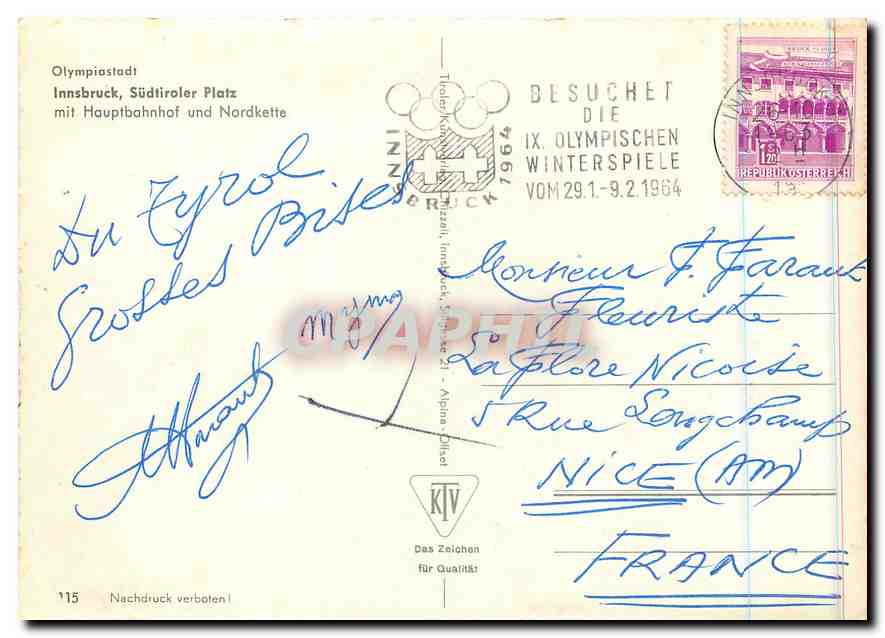 Olympiastadt
Innsbruck, Südtiroler Platz
mit Hauptbahnhof und Nordkette
Du Tyrol
Grosses Bises
Myma
INNSBRUCK 1964
BESUCHET
DIE
IX. OLYMPISCHEN
WINTERSPIELE
VOM 29.1.-9.2.1964
1.20
REPUBLIK ÖSTERREICH
Monsieur F. Faraut
Fleuriste
La Flore Nicoise
5 Rue Longchamp
NICE (AM)
FRANCE
Innsbruck
21 - Alpina-Offset
KTV
Das Zeichen
für Qualität
115 Nachdruck verboten!